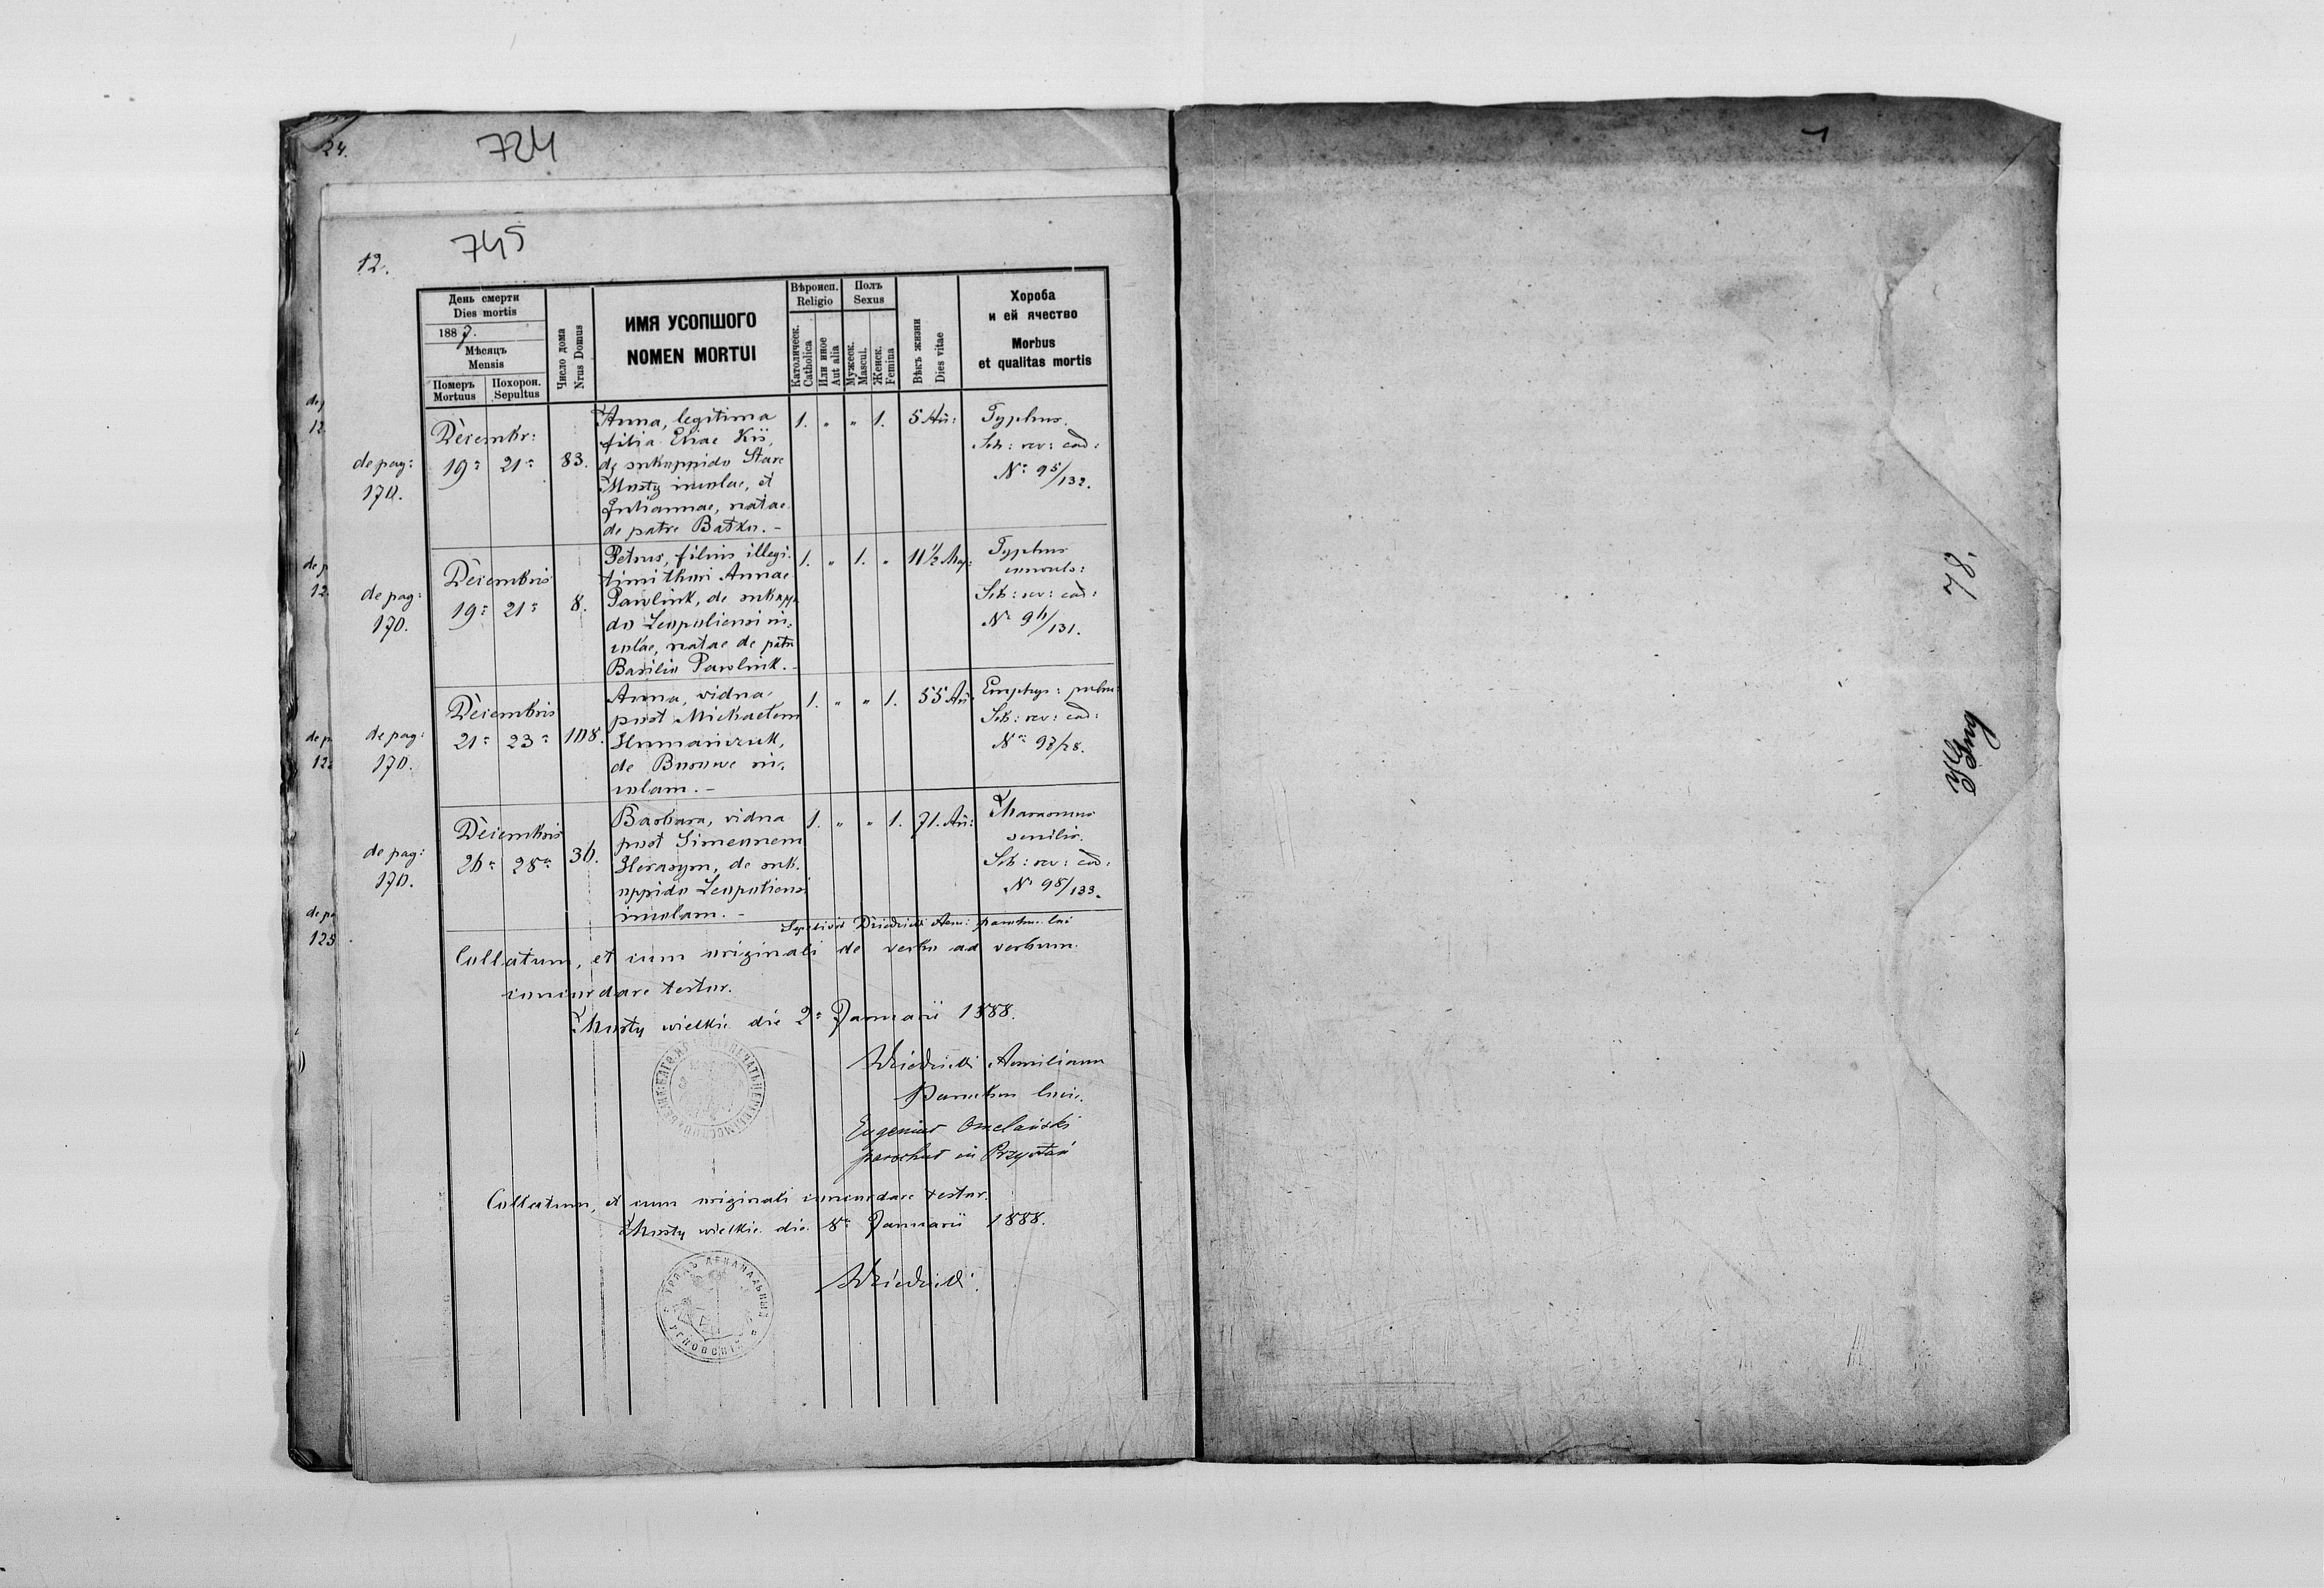 24.
724
745
12.
День смерти
Dies mortis
1887.
Мѣсяцъ
Mensis
Померъ
Mortuus
Похорон.
Sepultus
Число дома
Nrus Domus
ИМЯ УСОПШОГО
NOMEN MORTUI
Вѣроисп.
Religio
Католическ.
Catholica
Или иное
Aut alia
Полъ
Sexus
Мужеск.
Mascul.
Женск.
Femina
Вѣкъ жизни
Dies vitae
Хороба
и ей ячество
Morbus
et qualitas mortis
de pag:
170.
Decembr:
19a 21a
83.
Anna, legitima
filia Eliae Kis,
de suboppido Stare
Mosty incolae, et
Juliannae, natae
de patre Batko. -
1. " " 1.
5 An:
Typhus.
Sch: rev: cad:
No 95/132.
de pag:
170.
Decembris
19a 21a
8.
Petrus, filius illegi-
timi thori Annae
Pawluk, de subopp-
do Leopoliensi in-
colae, natae de patre
Basilio Pawluk. -
1. " 1. "
11 1/2
Typhus
Sch: rev: cad:
No 96/131.
de pag:
170.
Decembris
21a 23a
108.
Anna, vidua
post Michaelem
Humaniczuk,
de in-
colam. -
1. " " 1.
55 An:
Emphys: pulm:
Sch: rev: cad:
No 97/28.
de pag:
170.
Decembris
26a 28a
36.
Barbara, vidua
post Simeonem
Herasym, de sub-
oppido Leopoliensi
incolam. -
1. " " 1.
71. An:
Marasmus
senilis.
Sch: rev: cad:
No 98/133.
Sepelivit Dziedzicki Aem: parochus loci
Collatum, et cum originali de verbo ad verbum
concordare testor.
Mosty wielkie die 2a Januarii 1888.
Dziedzicki Aemilianus
Parochus loci.
Eugenius Omelański
parochus in Przystań
Collatum, et cum originali concordare testor.
Mosty wielkie die 8a Januarii 1888.
Dziedzicki.
УРЯДЪ ДЕКАНАЛЬНЫЙ
УГНОВСКІЙ
78.